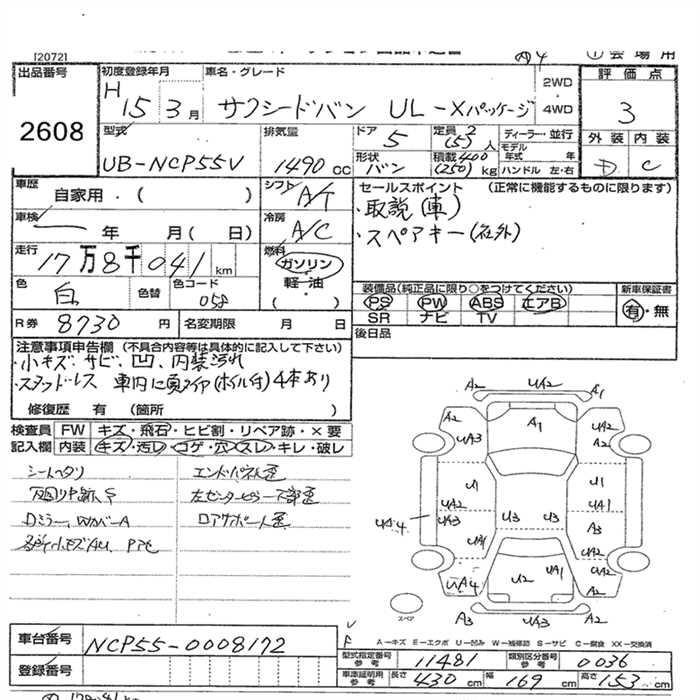 [2072]
出品番号
2608
初度登録年月
H 15 3 月
車名・グレード
サクシードバン UL-Xパッケージ
2WD
4WD
評価点
3
外装 内装
D C
型式
UB-NCP55V
排気量
1490 cc
ドア
5
形状
バン
定員 2
(5) 人
積載 400
(250) kg
ディーラー・並行
モデル年式 年
ハンドル 左・右
車歴
自家用・( )
シフト
A/T
車検
年 月( 日)
冷房
A/C
走行
17万8千041 km
燃料
ガソリン
軽・油
( )
色
白
色替
色コード
058
R券 8730 円
名変期限 月 日
セールスポイント (正常に機能するものに限ります)
・取説(車)
・スペアキー(社外)
装備品(純正品に限り○をつけてください)
PS PW ABS エアB
SR ナビ TV
新車保証書
有・無
後日品
注意事項申告欄 (不具合内容等は具体的に記入して下さい)
・小キズ、サビ、凹、内装汚れ
・スタッドレス 車内に夏タイヤ(ホイル付)4本あり
修復歴 有 (箇所 )
検査員 FW キズ・飛石・ヒビ割・リペア跡・×要
記入欄 内装 キズ・汚レ・コゲ・穴・スレ・キレ・破レ
シートヘタリ
エンドパネル歪
左センターピラー下部歪
Dミラー、WカバーA
ロアサポート歪
各所小キズAU、Pアセ
A2 UA2 A1
A2 A1 UA2
UA3 A2
U1 U1
UA2 UA1
UA4 UA3 U3 U3 A3
UA1 UA2
UA4 U2 UA1 UA2
A3 UA3 A2
スペア
A-キズ E-エクボ U-凹み W-補修跡 S-サビ C-腐食 XX-交換済
車台番号
NCP55-0008172
登録番号
型式指定番号 参考 11481
類別区分番号 参考 0036
車庫証明用 参考 長さ 430 cm 幅 169 cm 高さ 153 cm